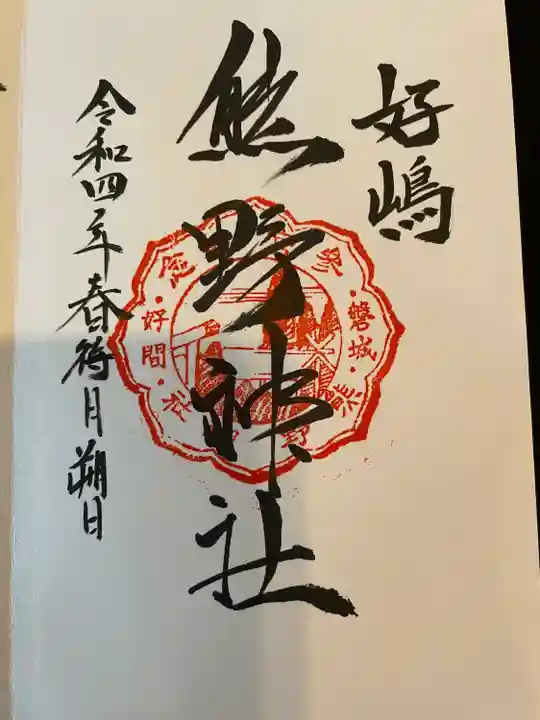 好嶋
熊野神社
令和四年春待月朔日
磐城
熊野神社
好間